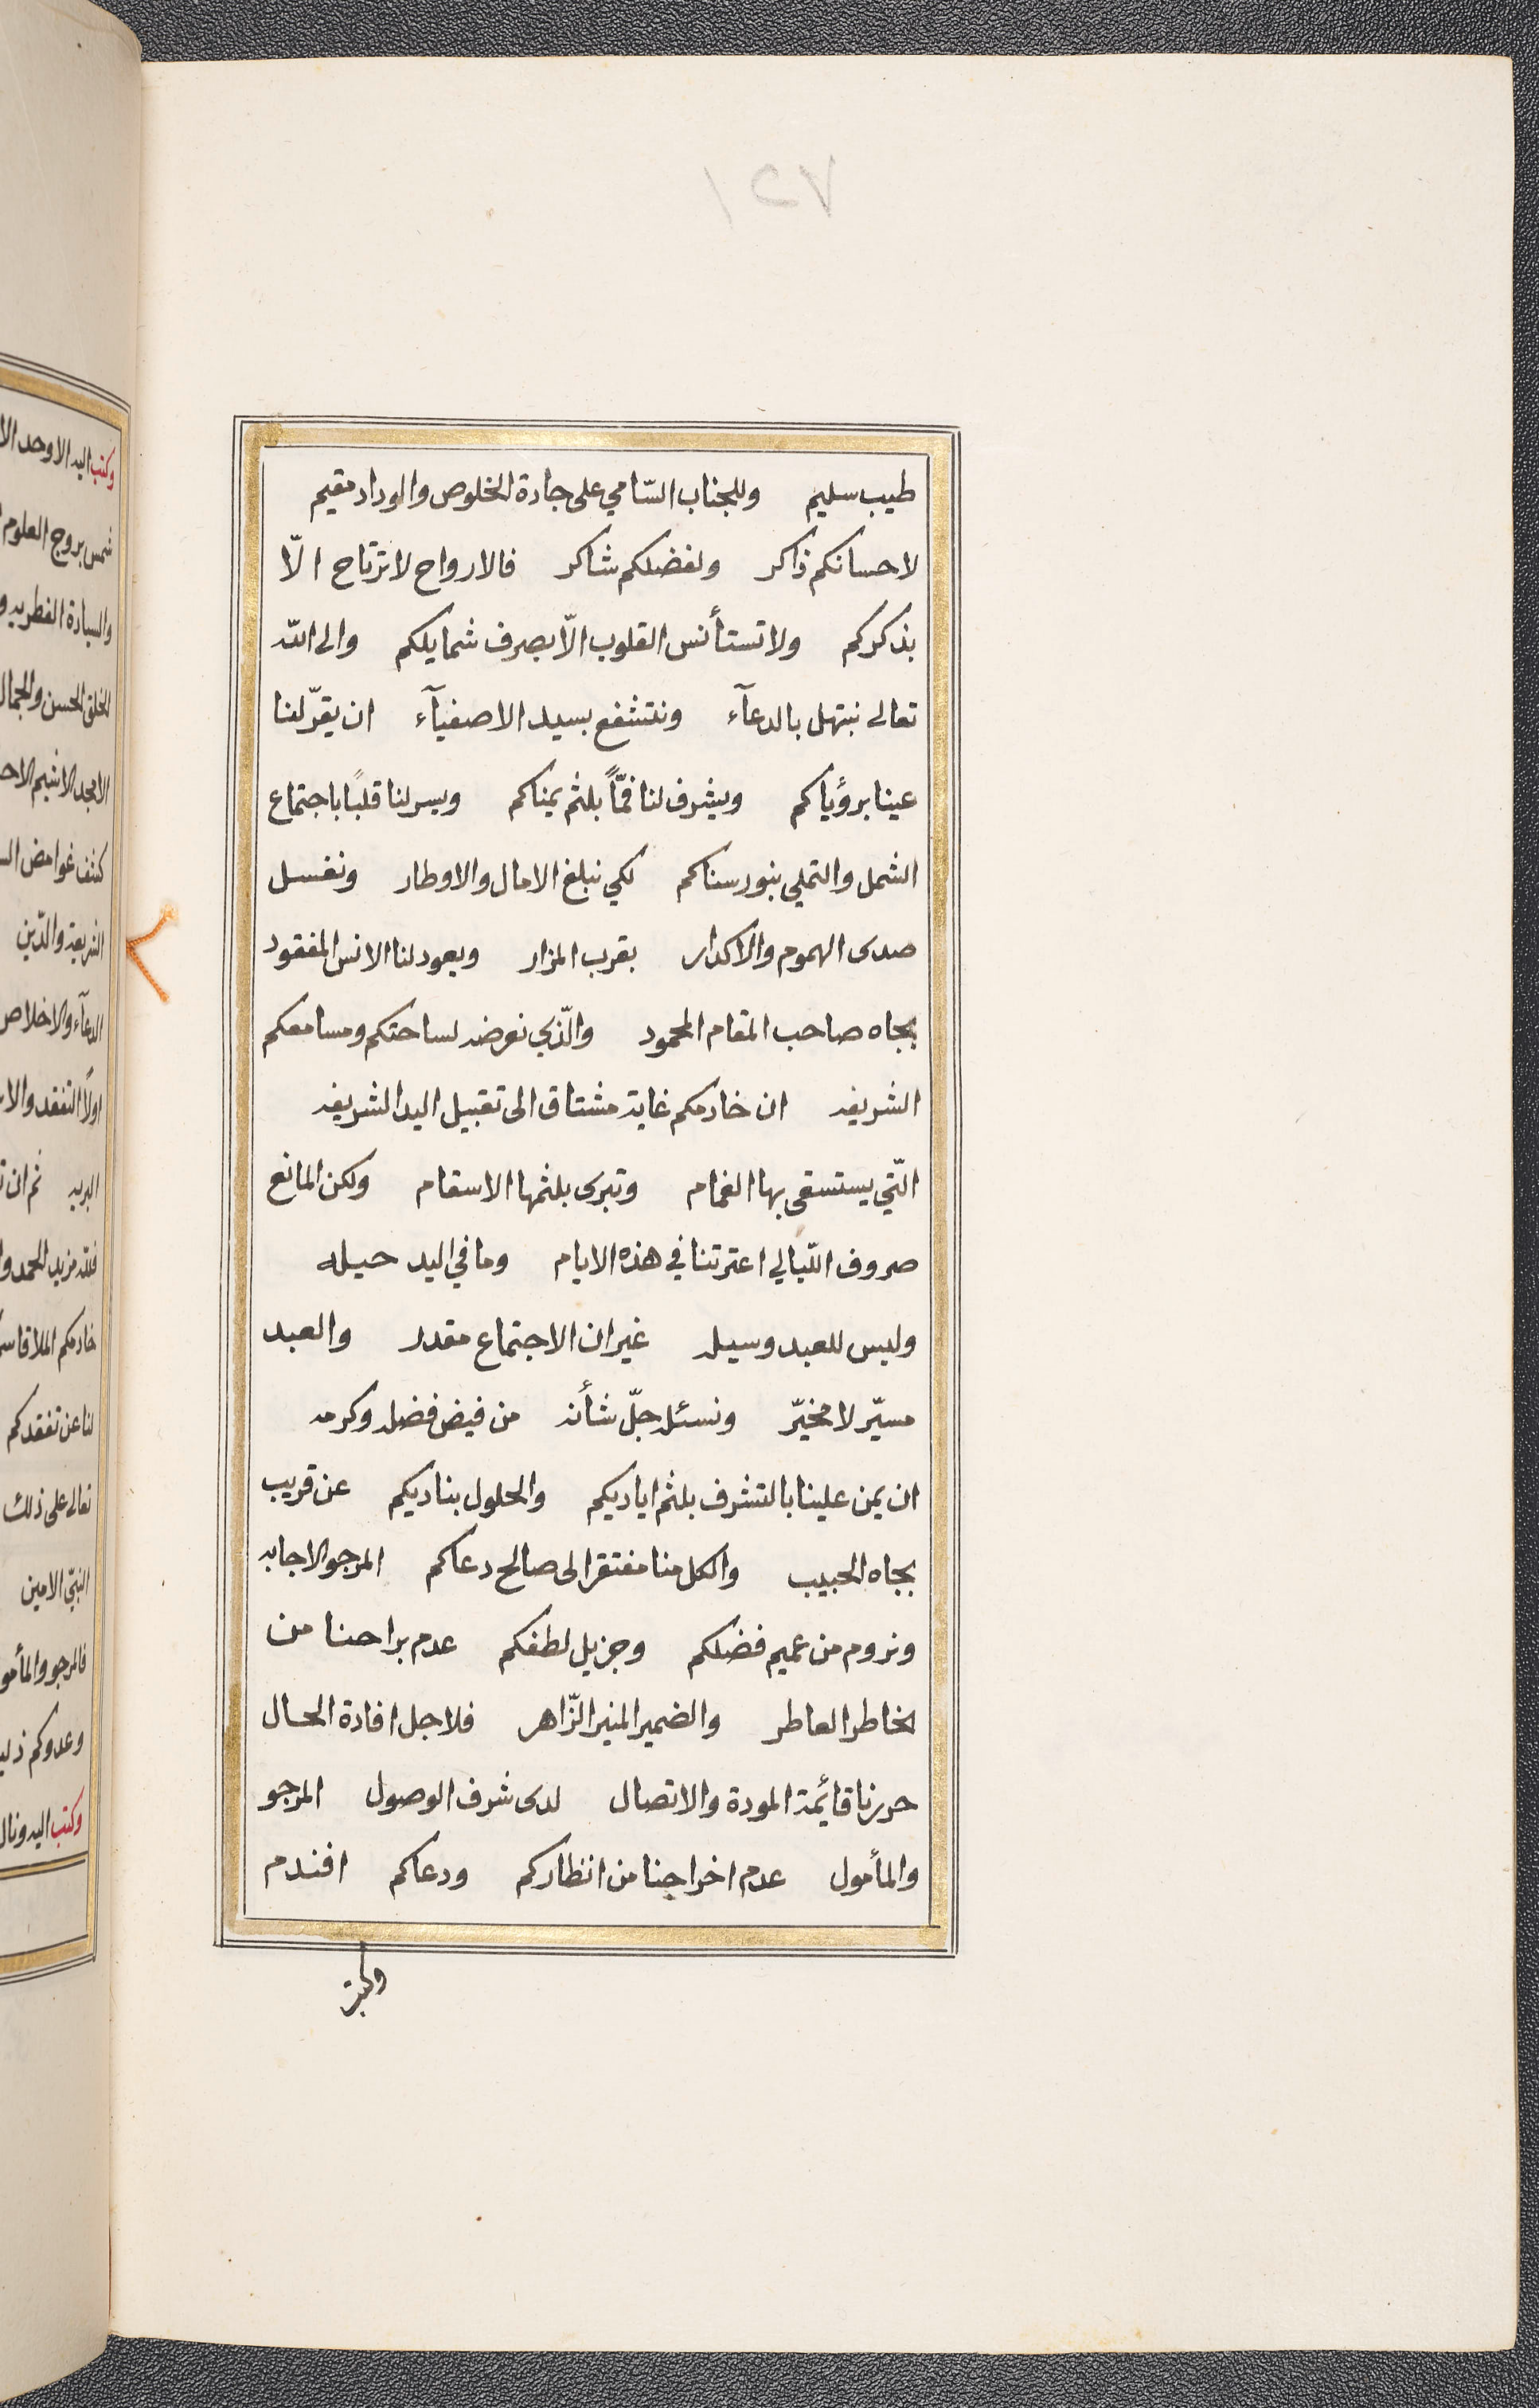 طيب سليم وللجناب السّامي على جادة الخلوص والوداد مقيم
لاحسانكم ذاكر ولفضلكم شاكر فالارواح لا ترتاح الّا
بذكركم ولا تستأنس القلوب الّا بصرف شمايلكم والى الله
تعالى نبتهل بالدعآء ونتشفع بسيد الاصفيآء ان يقرّ لنا
عينا برؤياكم ويشرف لنا فمّاً بلثم يمناكم ويسر لنا قلبًا باجتماع
الشمل والتملي بنور سناكم لكي نبلغ الامال والاوطار ونغسل
صدى الهموم والاكدار بقرب المزار ويعود لنا الانس المفقود
بجاه صاحب المقام المحمود والّذي نعرضه لساحتكم ومسامعكم
الشريفه ان خادمكم غاية مشتاق الى تقبيل اليد الشريفه
الّتي يستسقى بها الغمام وتبرى بلثمها الاسقام ولكن المانع
صروف اللّيالي اعترتنا في هذه الايام وما في اليد حيله
وليس للعبد وسيله غير ان الاجتماع مقدر والعبد
مسيّر لا مخيّر ونسئله جلّ شأنه من فيض فضله وكرمه
ان يمن علينا بالتشرف بلثم اياديكم والحلول بناديكم عن قريب
بجاه الحبيب والكل منا مفتقر الى صالح دعاكم المرجو الاجابه
ونروم من عميم فضلكم وجزيل لطفكم عدم براحنا من
الخاطر العاطر والضمير المنير الزّاهر فلاجل افادة الحال
حررنا قائمة المودة والاتصال لدى شرف الوصول المرجو
والمأمول عدم اخراجنا من انظاركم ودعاكم افندم
وكتب
وكتب اليه الاوحد
شمس بروج العلوم
الخلق الحسن والجمال
كشف غوامض
الشريعة والدّين
الدعآء والاخلاص
اولاً التفقد
البريه ثم ان
فلله مزيد الحمد
خادمكم
لنا عن تفقدكم
تعالى على ذلك
النبّي الامين
فالمرجو
وعدوكم
وكتب اليه